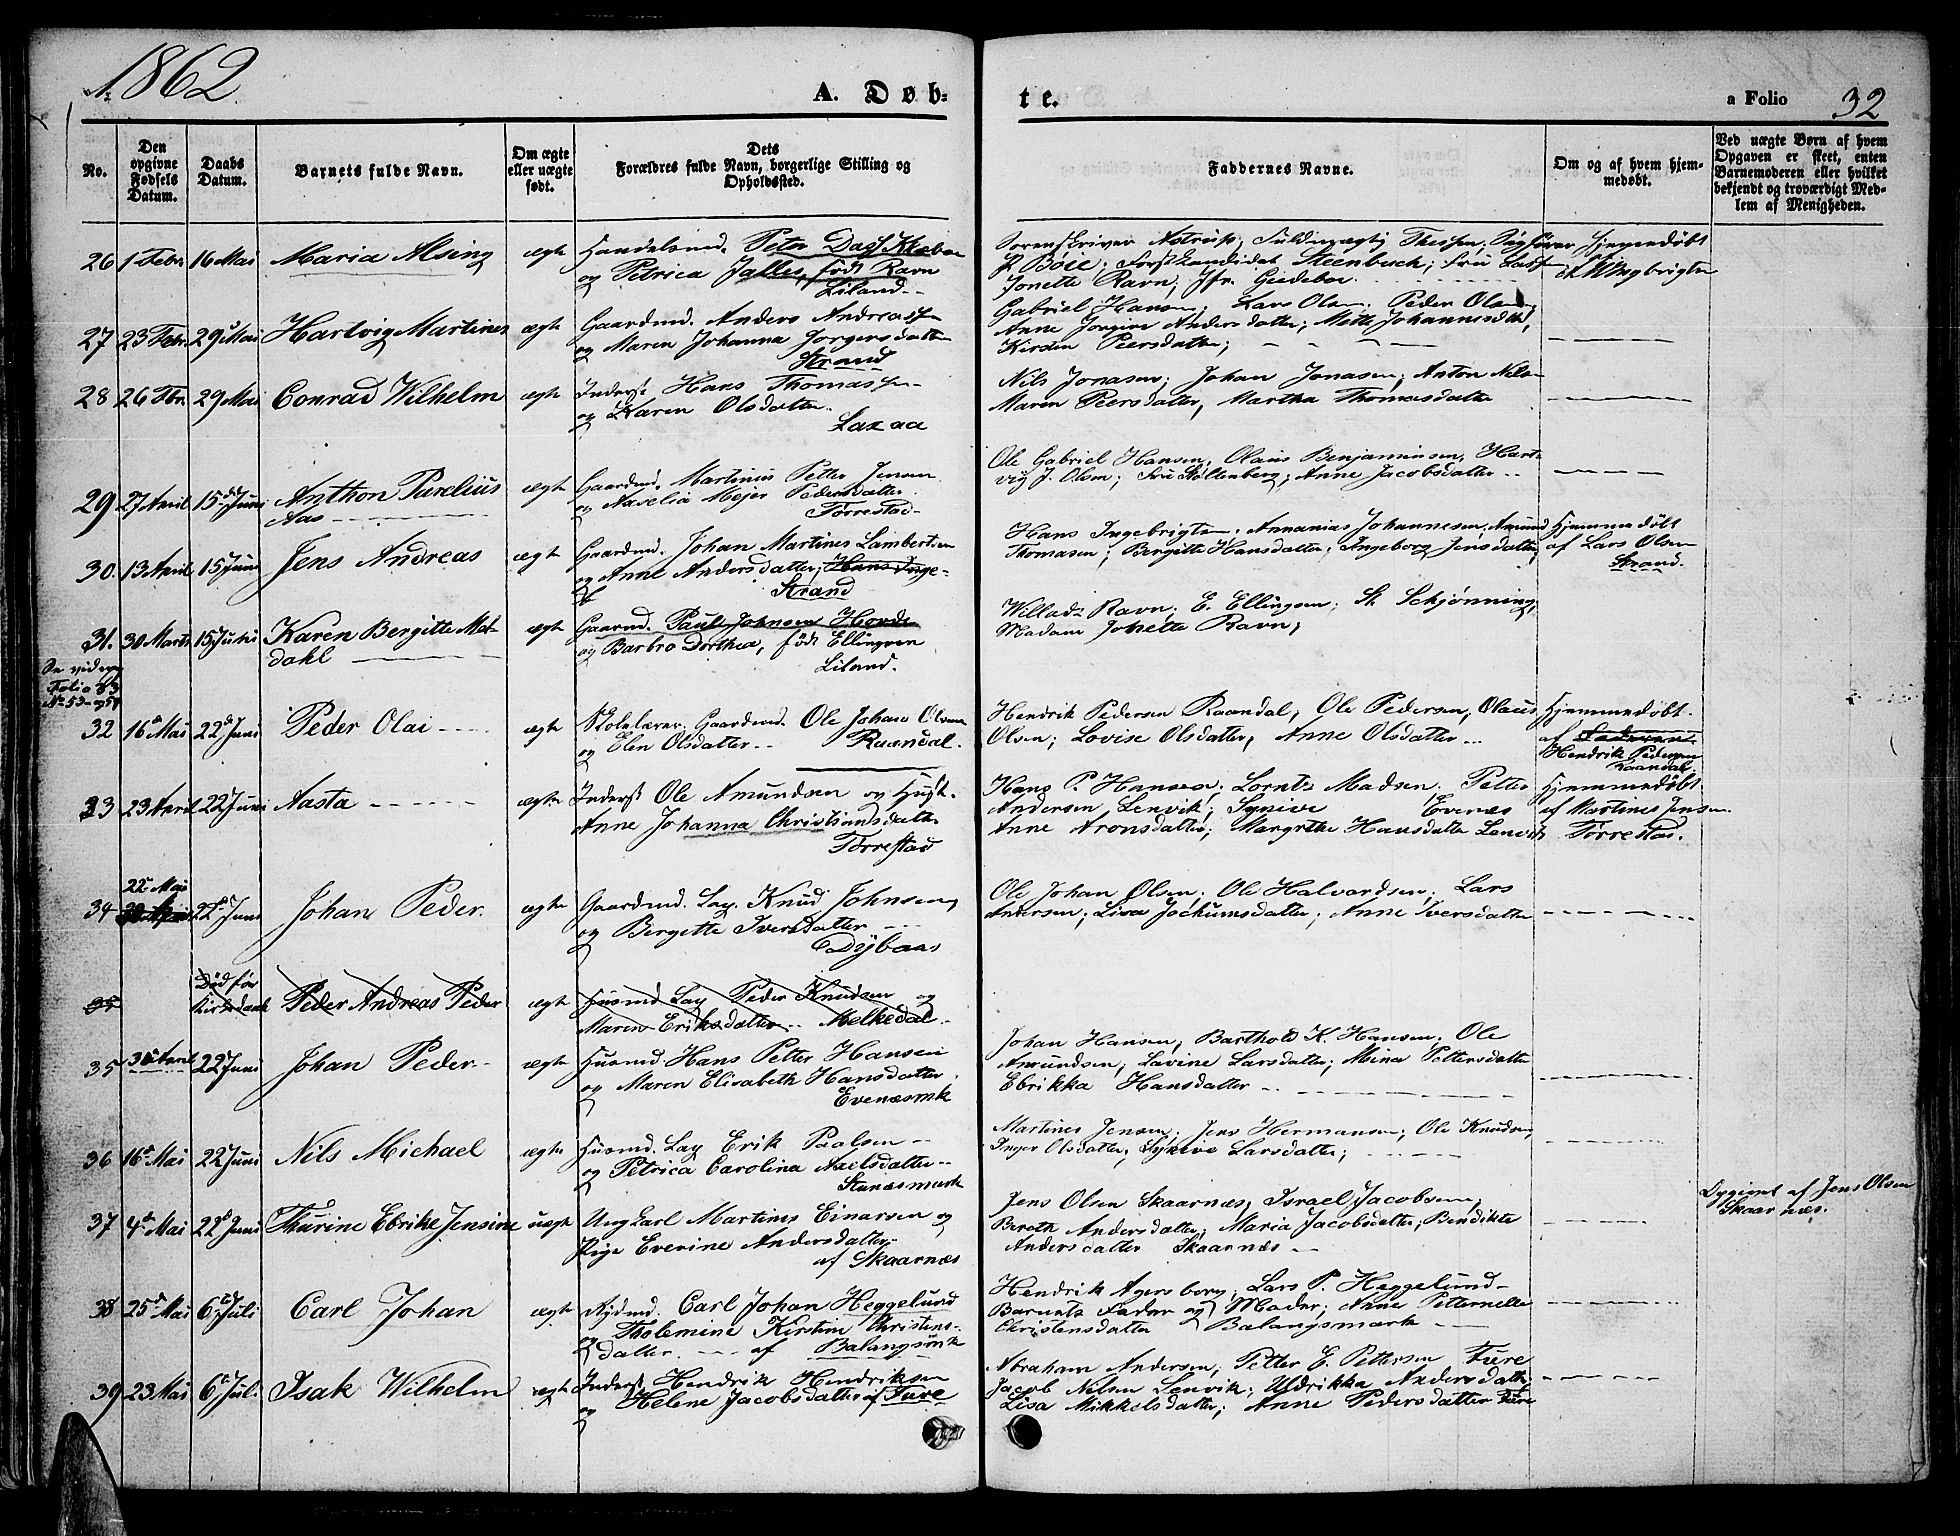 A: 1862.
A. Døb=
te.
a Folio 32
No.
Den opgivne Fødsels Datum.
Daabs Datum.
Barnets fulde Navn.
Om ægte eller uægte født.
Dets Forældres fulde Navn, borgerlige Stilling og Opholdssted.
Faddernes Navne.
Om og af hvem hjemmedøbt.
Ved uægte Børn af hvem Opgaven er skeet, enten Barnemoderen eller hvilket bekjendt og troværdigt Medlem af Menigheden.
26 1 Febr. 16 Mai Maria Alsing ægte Handelsmd. Peter Dass
og Petrica Jalles, født Ravn
Liland
Sorenskriver Astrup; Fuldmægtig
P. Bøie; Forstkandidat Steenbuch; Fru
Jonette Ravn; Jfr.
Hjemmedøbt
27 23 Febr. 29 Mai Hartvig Martines ægte Gaardmd. Anders Andreassen
og Maren Johanna Jørgensdatter
Strand
Gabriel Hansen; Lars Olsen; Peder Olsen
Anne Andersdatter; Mette Johannesdtr;
Kirsten Peersdatter;
28 26 Fbr. 29 Mai Conrad Wilhelm ægte Inderst Hans Thomassen
og Karen Olsdatter.
Laxaa
Nils Jonasen; Johan Jonasen; Anton Nils
Maren Peersdatter, Martha Thomasdatter
29 27 April 15de Juni Anthon Parelius ægte Gaardmd. Martinus Petter Jensen
Aas
og Aaselia Mejer Pedersdatter
Torrestad
Ole Gabriel Hansen, Olaus Benjaminsen, Hart-
vig J. Olsen; Fru Stoltenberg; Anne Jacobsdatter
30. 13 April 15 Juni Jens Andreas ægte Gaardmd. Johan Martines Lambertsen
og Anne Andersdatter, Hans Inge-
Strand
Hans Ingebrigtsen, Annanias Johannesen, Amund
Thomasen; Bergitte Hansdatter; Ingeborg Jensdatter
Hjemmedøbt
af Lars Olsen
Strand.
31. 30 Marts 15 Juni Karen Bergitte Mel- ægte Gaarmd. Paul Johnsen
dahl
og Barbro Dorthea, født Ellingsen
Liland.
Willads Ravn; E. Ellingsen; St. Schjønning,
Madam Jonette Ravn;
Se videre
Folio 33
No 53 og 54
32 16de Mai 22de Juni Peder Olai ægte Skolelærer, Gaardmd. Ole Johan Olsen
og Elen Olsdatter Raandal.
Hendrik Pedersen Raandal; Ole Pedersen, Olaus
Olsen; Lovise Olsdatter, Anne Olsdatter
Hjemmedøbt
af Faderen
Hendrik Pedersen
Raandal
33 23 April 22 Juni Aasta ægte Inderst Ole Amundsen og Hust.
Anne Johanna Christiansdatter
Torrestad
Hans P. Hansen; Lorntz Madsen; Petter
Andersen, Lenvik; Synive Evenæs
Anne Aronsdatter; Margrthe Hansdatter Lenvik
Hjemmedøbt
af Martines Jensen
Torrestad.
34 22 Mai 22de Juni Johan Peder ægte Gaardmd. Lap. Knud Johnsen
og Bergette Iversdatter
Dybaas
Ole Johan Olsen; Ole Halvardsen; Lars
Andersen; Lisa Jochumsdatter; Anne Iversdatter
35 Død før
Kirkedaab Peder Andreas Peder ægte Husmd. Lap Peder Knudsen og
Maren Eriksdatter Melkedal.
35 30 April 22 Juni Johan Peder ægte Husmd. Hans Petter Hansen
og Maren Elisabeth Hansdatter
Evenæsmk
Johan Hansen; Barthold K. Hansen; Ole
Amundsen; Lavine Larsdatter; Mina Pettersdatter
Ebrikka Hansdatter
36 16de Mai 22 Juni Nils Michael ægte Husmd. Lap Erik Paalsen
og Petrica Carolina Axelsdatter
Stunæsmark
Martines Jensen; Jens Hermansen; Ole Knudsen
Inger Olsdatter, Synive Larsdatter;
37 4de Mai 22de Juni Thurine Ebrike Jensine uægt Ungkarl Martines Einarsen og
Pige Everine Andersdatter
af Skaarnæs
Jens Olsen Skaarnæs, Israel Jacobsen;
Bereth Andersdatter; Maria Jacobsdatter; Bendikte
Andersdatter Skaarnæs
Opgivet af Jens Olsen
Skaarnæs.
38 25de Mai 6te Juli Carl Johan ægte Rydmd. Carl Johan Heggelund
og Tholemine Kirstine Christens-
datter af Balangsmk
Hendrik Agersborg; Lars P. Heggelund
Barnets Fader og Moder; Anne Petternelle
Christensdatter Balangsmark
39 23 Mai 6te Juli Isak Wilhelm ægte Inderst Hendrik Hendriksen
og Helene Jacobsdatter af Ture
Abraham Andersen; Petter E. Pettersen Ture
Jacob Nilsen Lenvik; Uldrikka Andersdatter
Lisa Mikkelsdatter; Anne Pedersdatter Ture